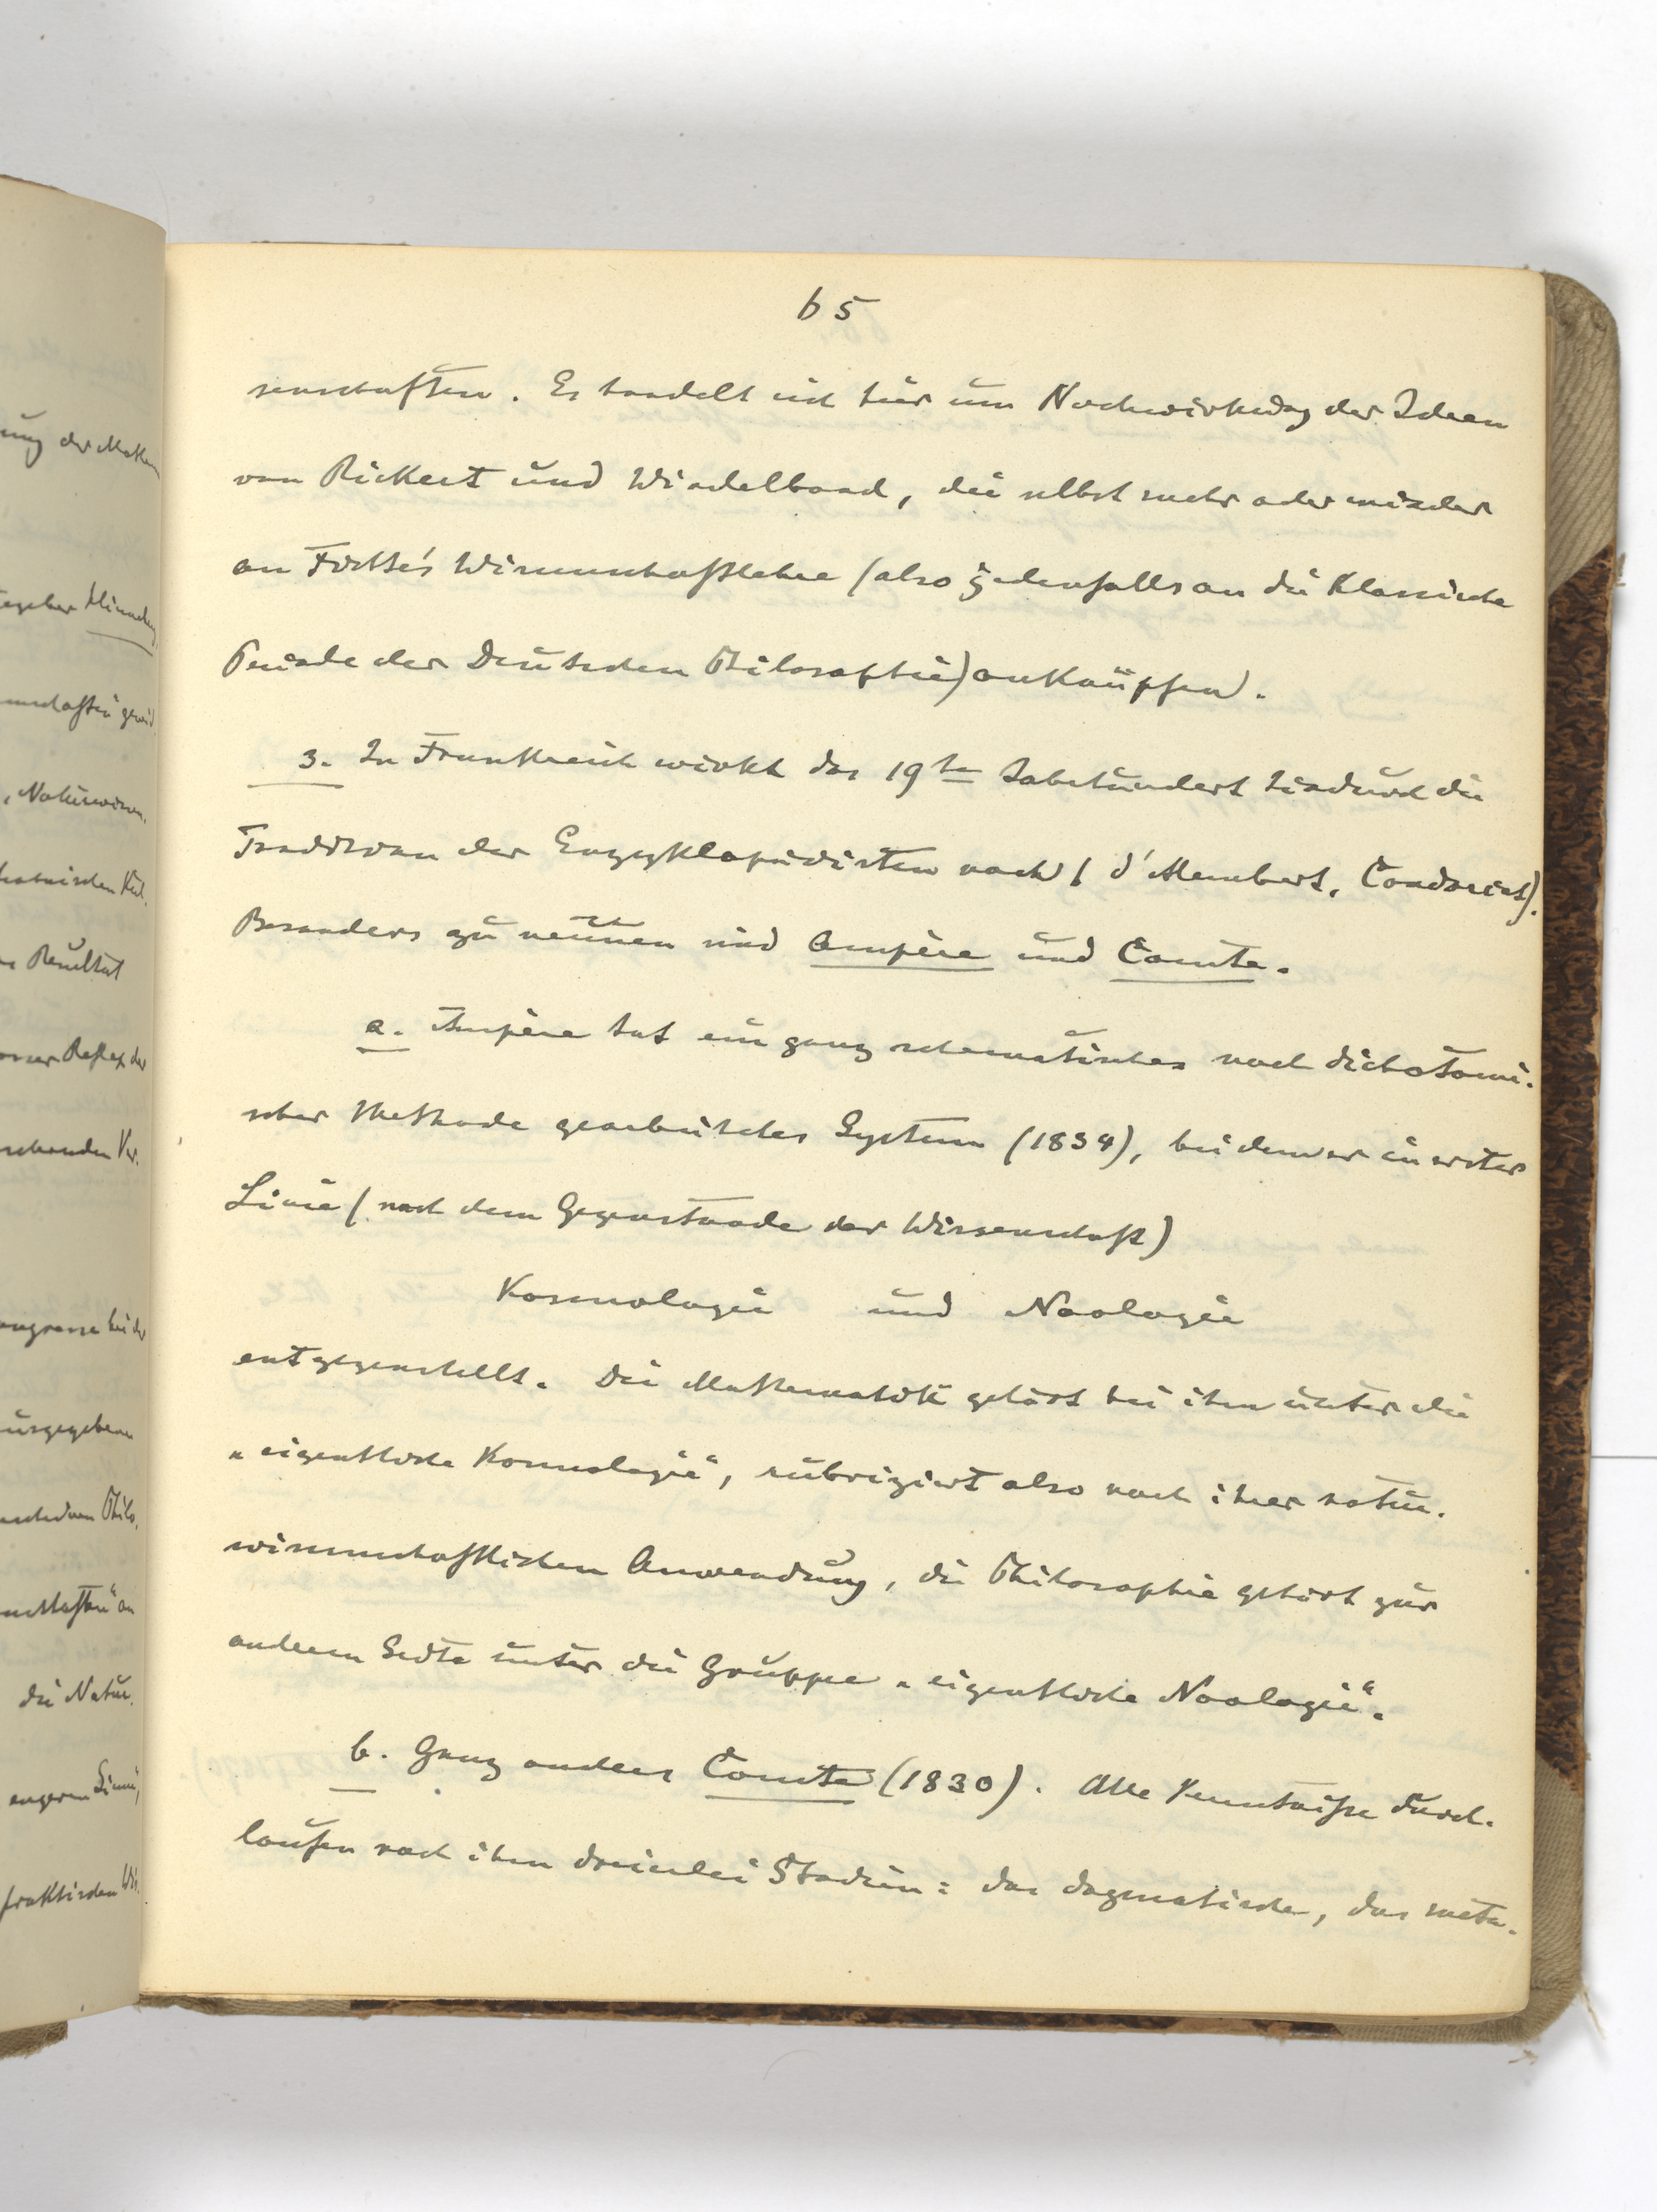 65
senschaften. Es handelt sich hier um Nachwirkung der Ideen
von Rickert und Windelband, die selbst mehr oder minder
an Fichte's Wissenschaftslehre (also jedenfalls an die klassische
Periode der Deutschen Philosophie) anknüpfen.
3. In Frankreich wirkt das 19te Jahrhundert hindurch die
Tradition der Enzyklopädisten nach (d'Alembert, Condorcet).
Besonders zu nennen sind Ampère und Comte.
a. Ampère hat ein ganz schematisches nach dichotomi-
scher Methode gearbeitetes System (1834), bei dem er in erster
Linie (nach dem Gegenstande der Wissenschaft)
Kosmologie und Noologie
entgegenstellt. Die Mathematik gehört bei ihm unter die
„eigentliche Kosmologie“, rubriziert also nach ihrer natur-
wissenschaftlichen Anwendung, die Philosophie gehört zur
anderen Seite unter die Gruppe „eigentliche Noologie“.
b. Ganz anders Comte (1830). Alle Kenntnisse durch-
laufen nach ihm dreierlei Stadien: das dogmatische, das meta-
ung der Mathe
schaften gewid
„Naturwissen.
Resultat
Reflex der
schenden Ver-
ausgegeben
Philo.
die Natur.
engeren Sinne,
praktischen Wis.